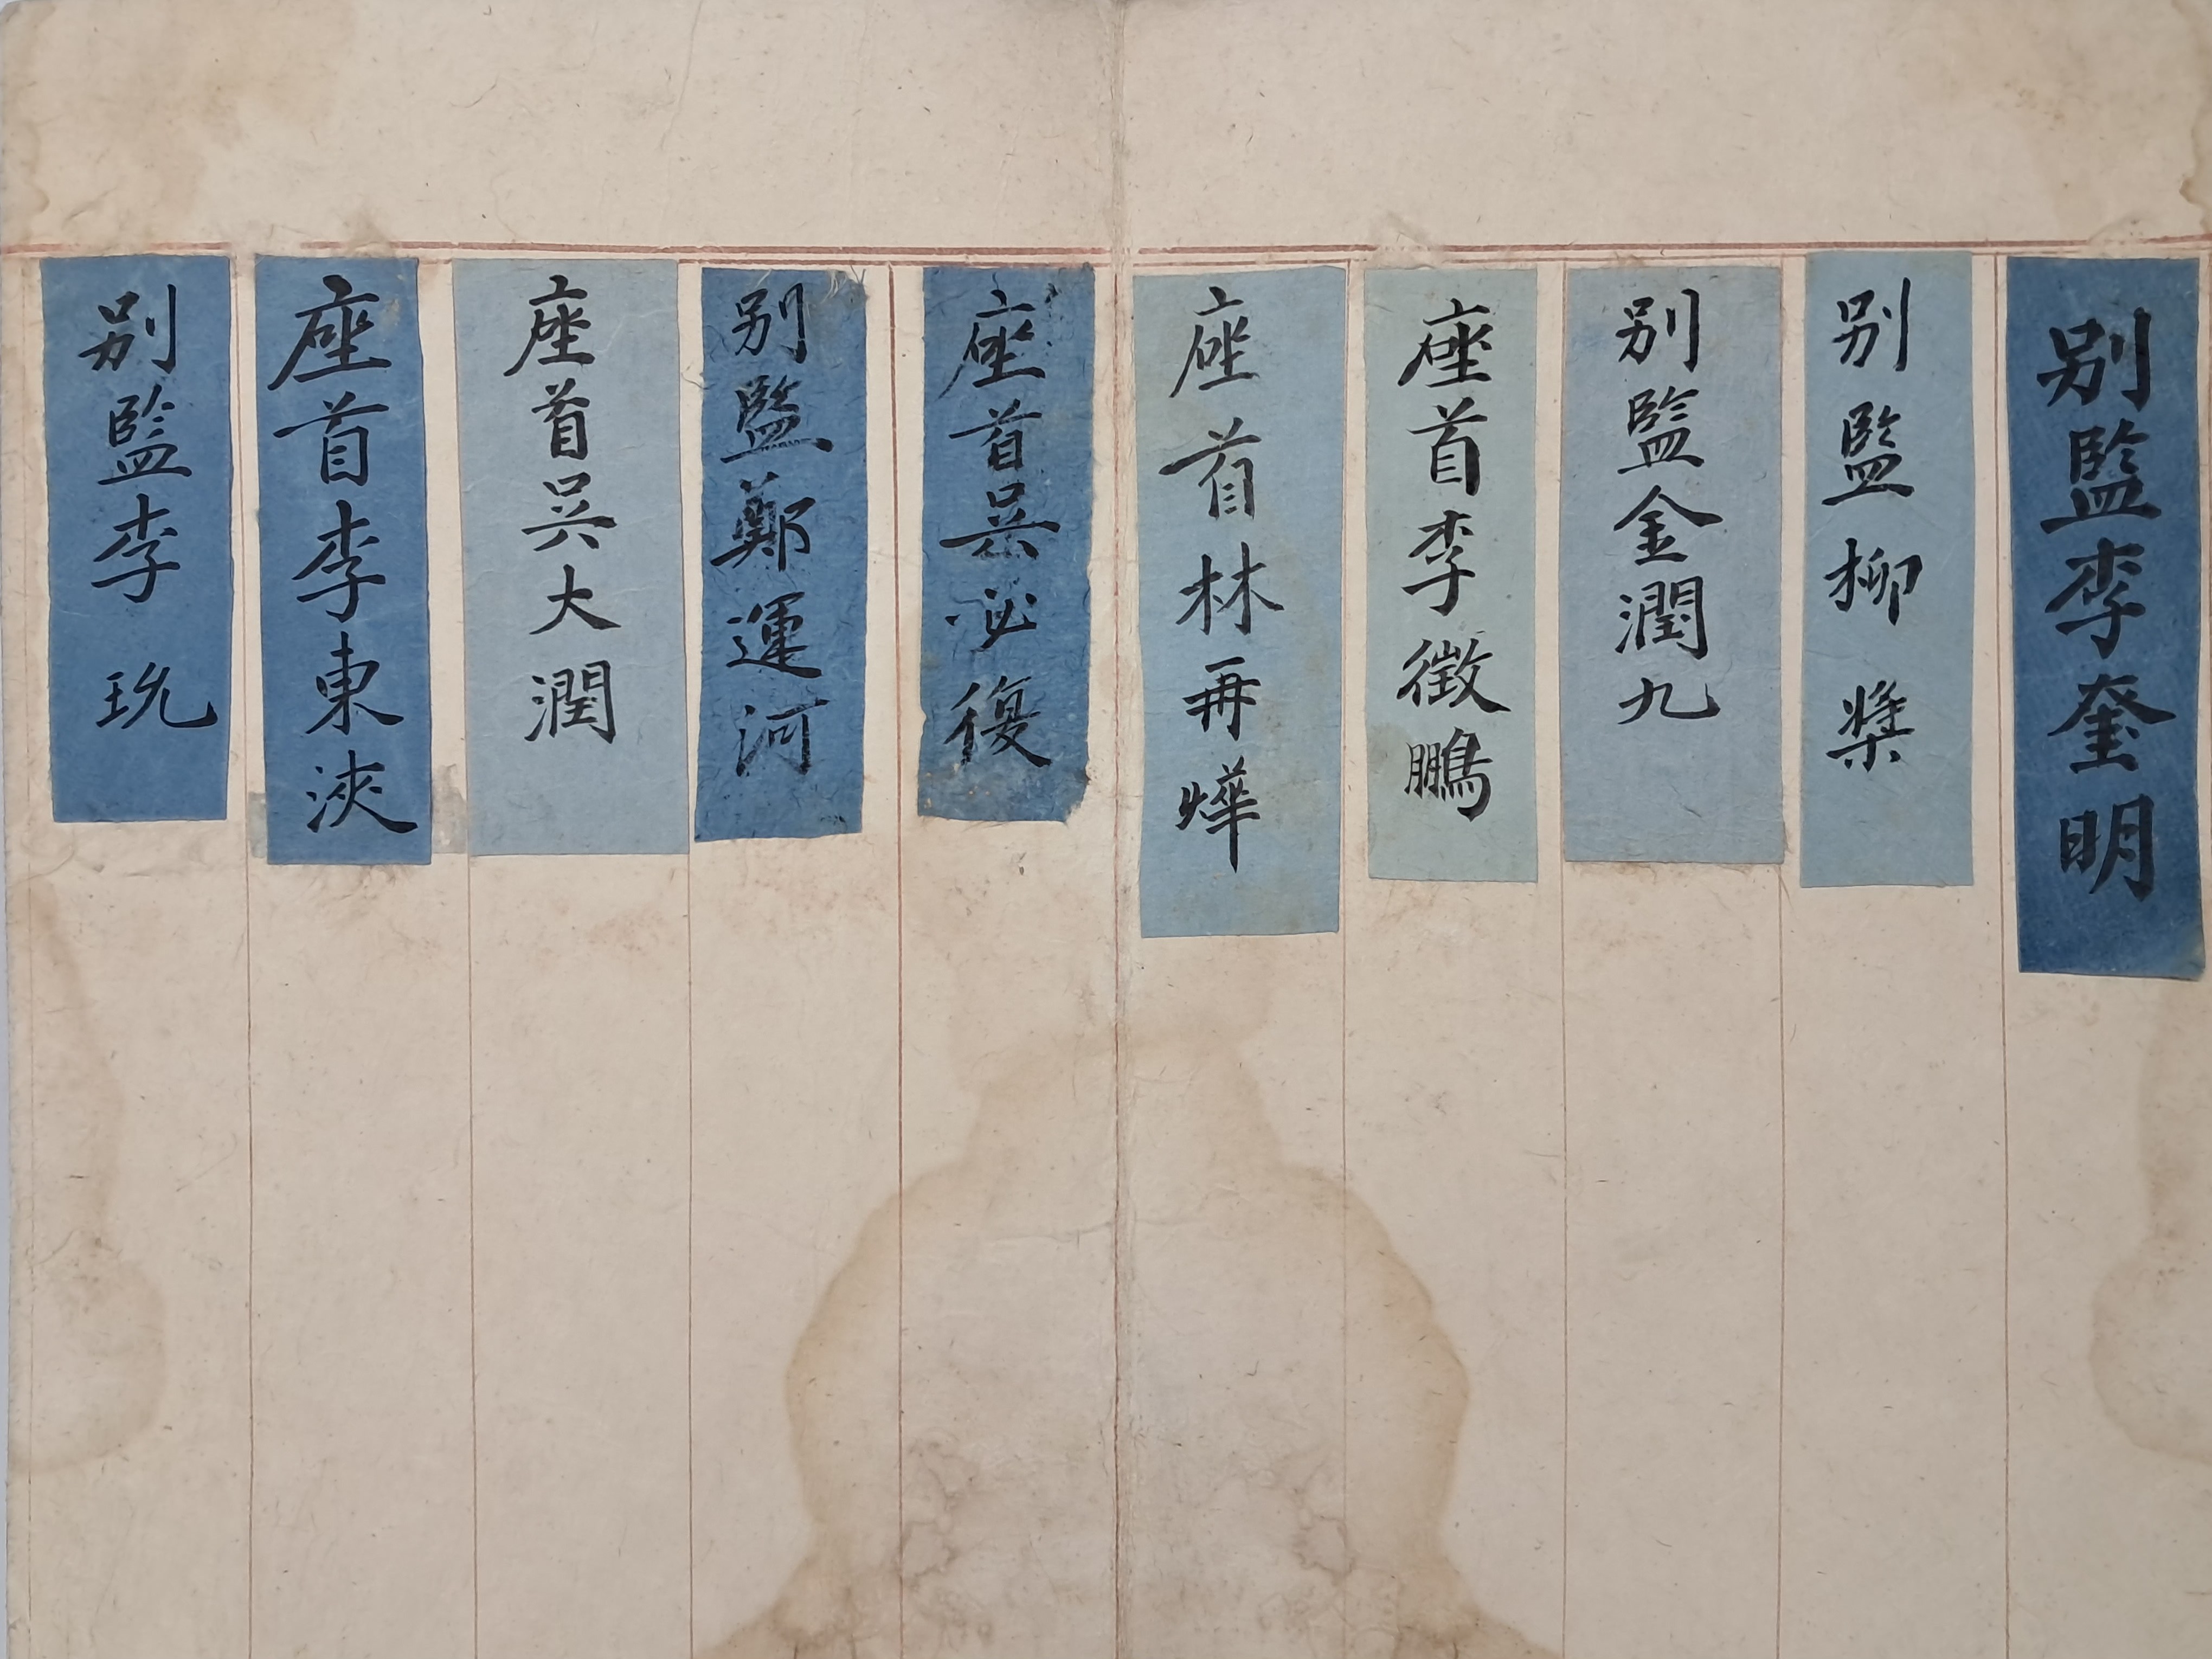 別監李奎明
別監柳槳
別監金潤九
座首李徵鵬
座首林再燁
座首吳必復
別監鄭運河
座首吳大潤
座首李東浹
別監李玧